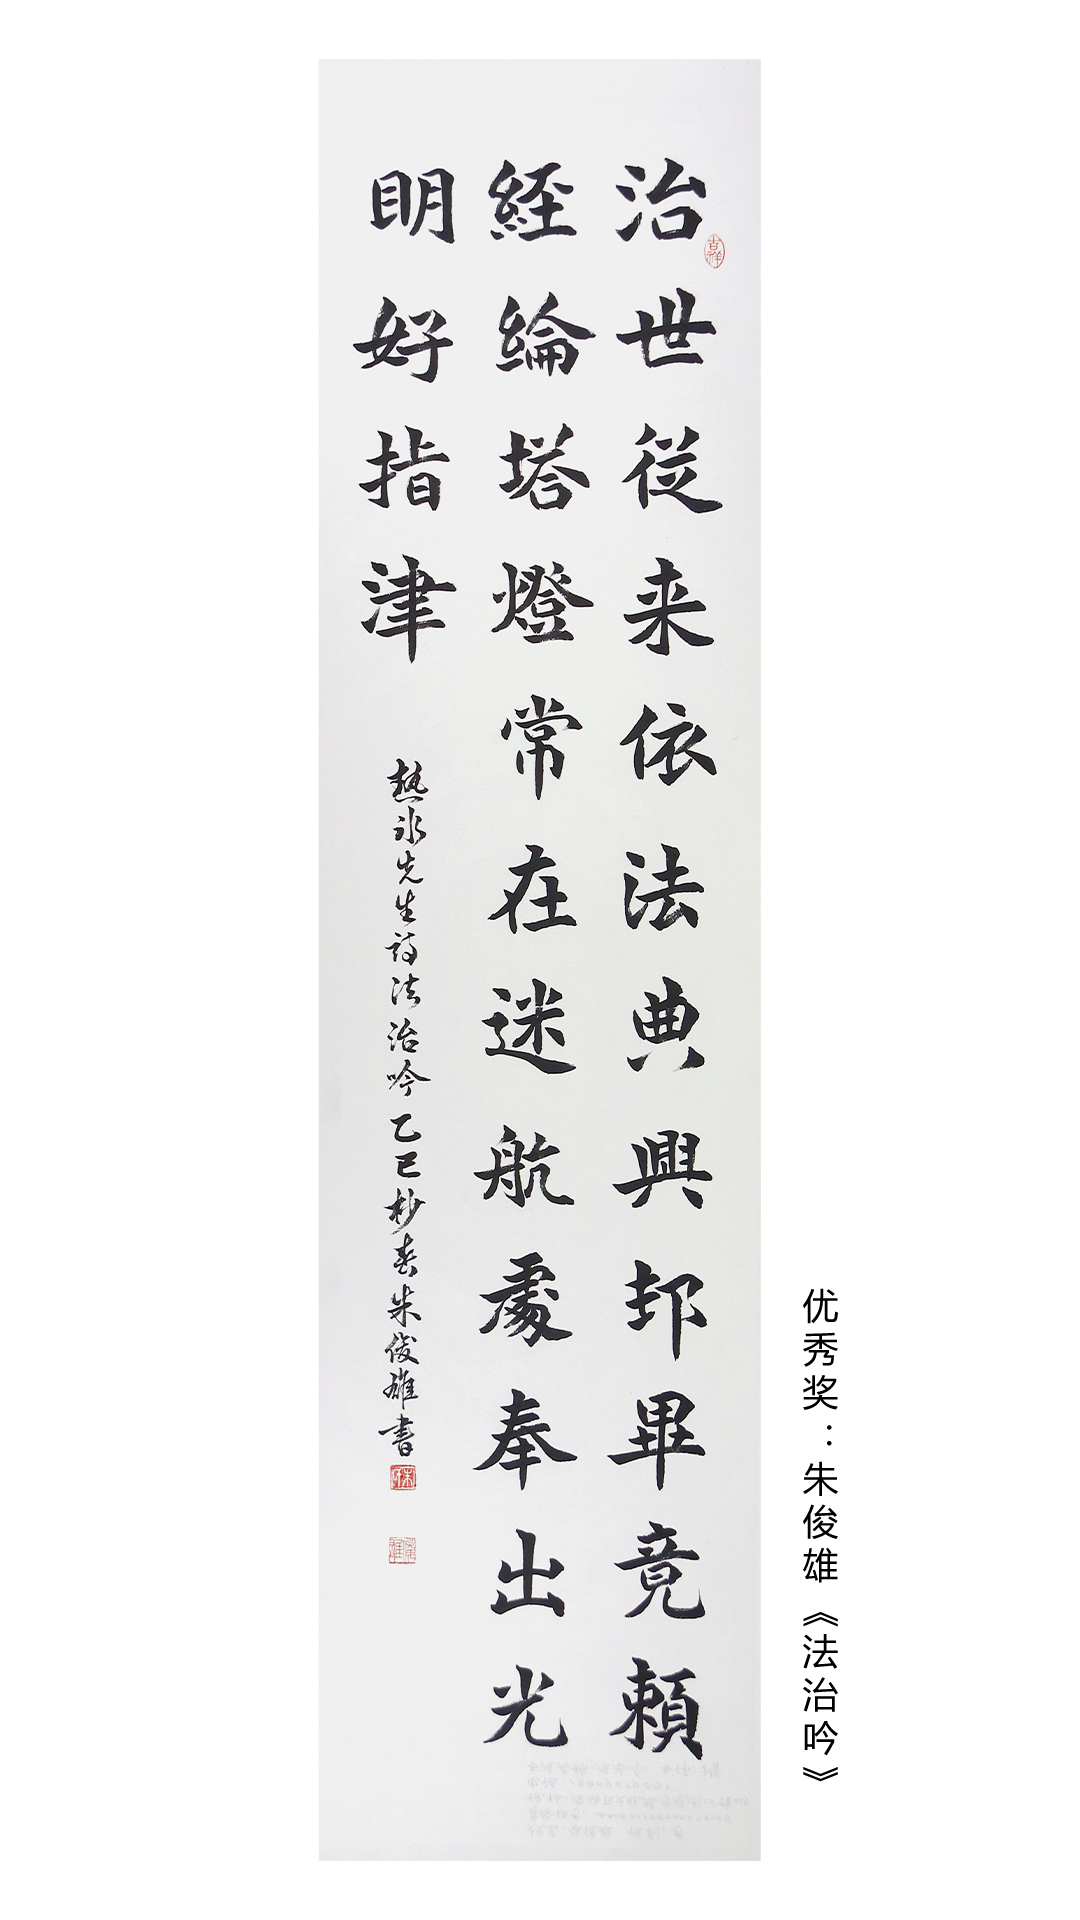 治世從来依法典興邦畢竟賴
経綸塔燈常在迷航處奉出光
明好指津
熱冰先生诗法治吟乙巳杪春朱俊雄書
吉祥
优秀奖：朱俊雄《法治吟》